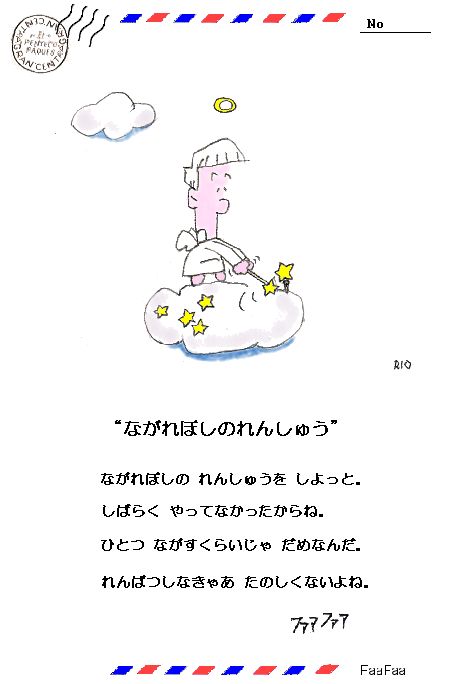 No
RIO
“ながれぼしのれんしゅう”
ながれぼしの れんしゅうを しよっと。
しばらく やってなかったからね。
ひとつ ながすくらいじゃ だめなんだ。
れんぱつしなきゃあ たのしくないよね。
ファァファァ
FaaFaa